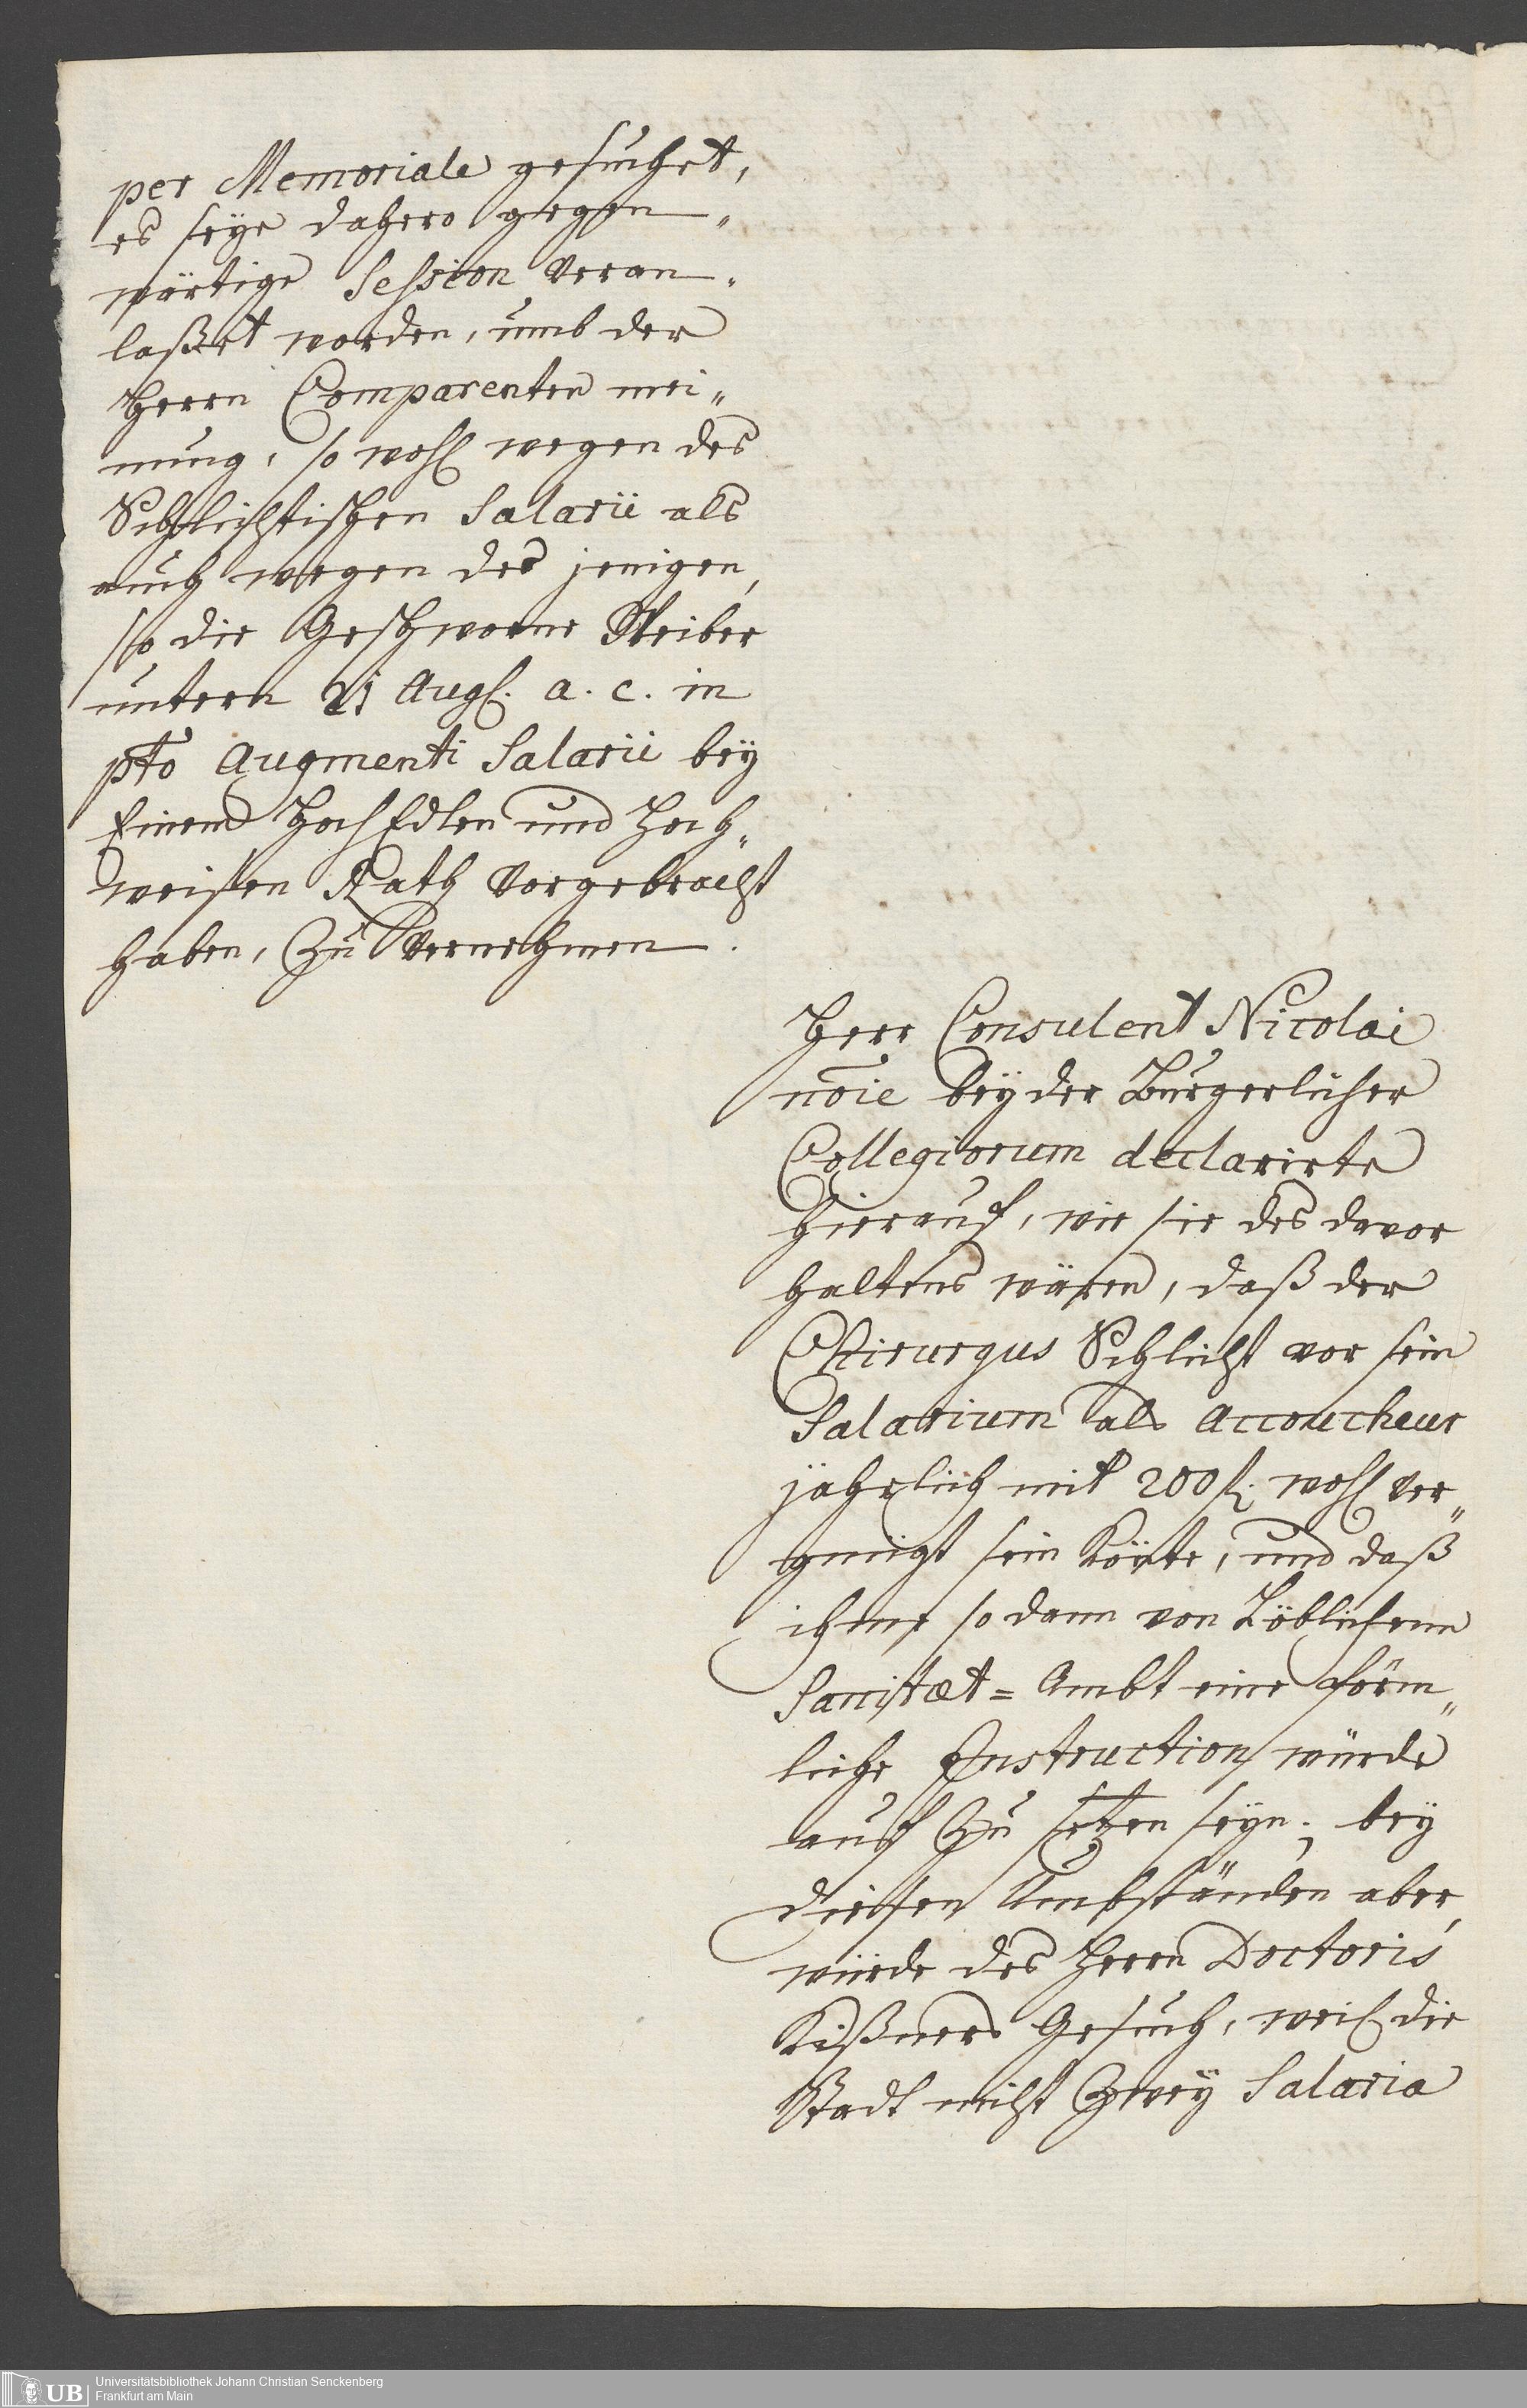 per Memoriale gesuchet,
es seye dahero gegen„
wärtige Session veran„
laßet worden, umb der
Herrn Comparenten mei„
nung, so wohl wegen des
Schlichtischen Salarii als
auch wegen des jenigen,
so die Geschworne Weiber
untern 21 Aug. a. c. in
pto Augmenti Salarii bey
Einem HochEdlen und Hoch„
weißen Rath vorgebracht
haben, zu vernehmen.
Herr Consulent Nicolai
noie beyder Burgerlicher
Collegiorum declarirte
hierauf, wie sie des davor
haltens wären, daß der
Chirurgus Schlicht vor sein
Salarium als Accoucheur
jährlich mit 200 fl. wohl ver„
gnügt sein könte, und daß
ihme so dann von Löblichem
Sanitæt=Ambt eine förm„
liche Instruction würde
auf zu setzen seyn; bey
dießen Umbständen aber,
würde des Herrn Doctoris
Kißners Gesuch, weil die
Stadt nicht zwey Salaria
Universitätsbibliothek Johann Christian Senckenberg
Frankfurt am Main
UB